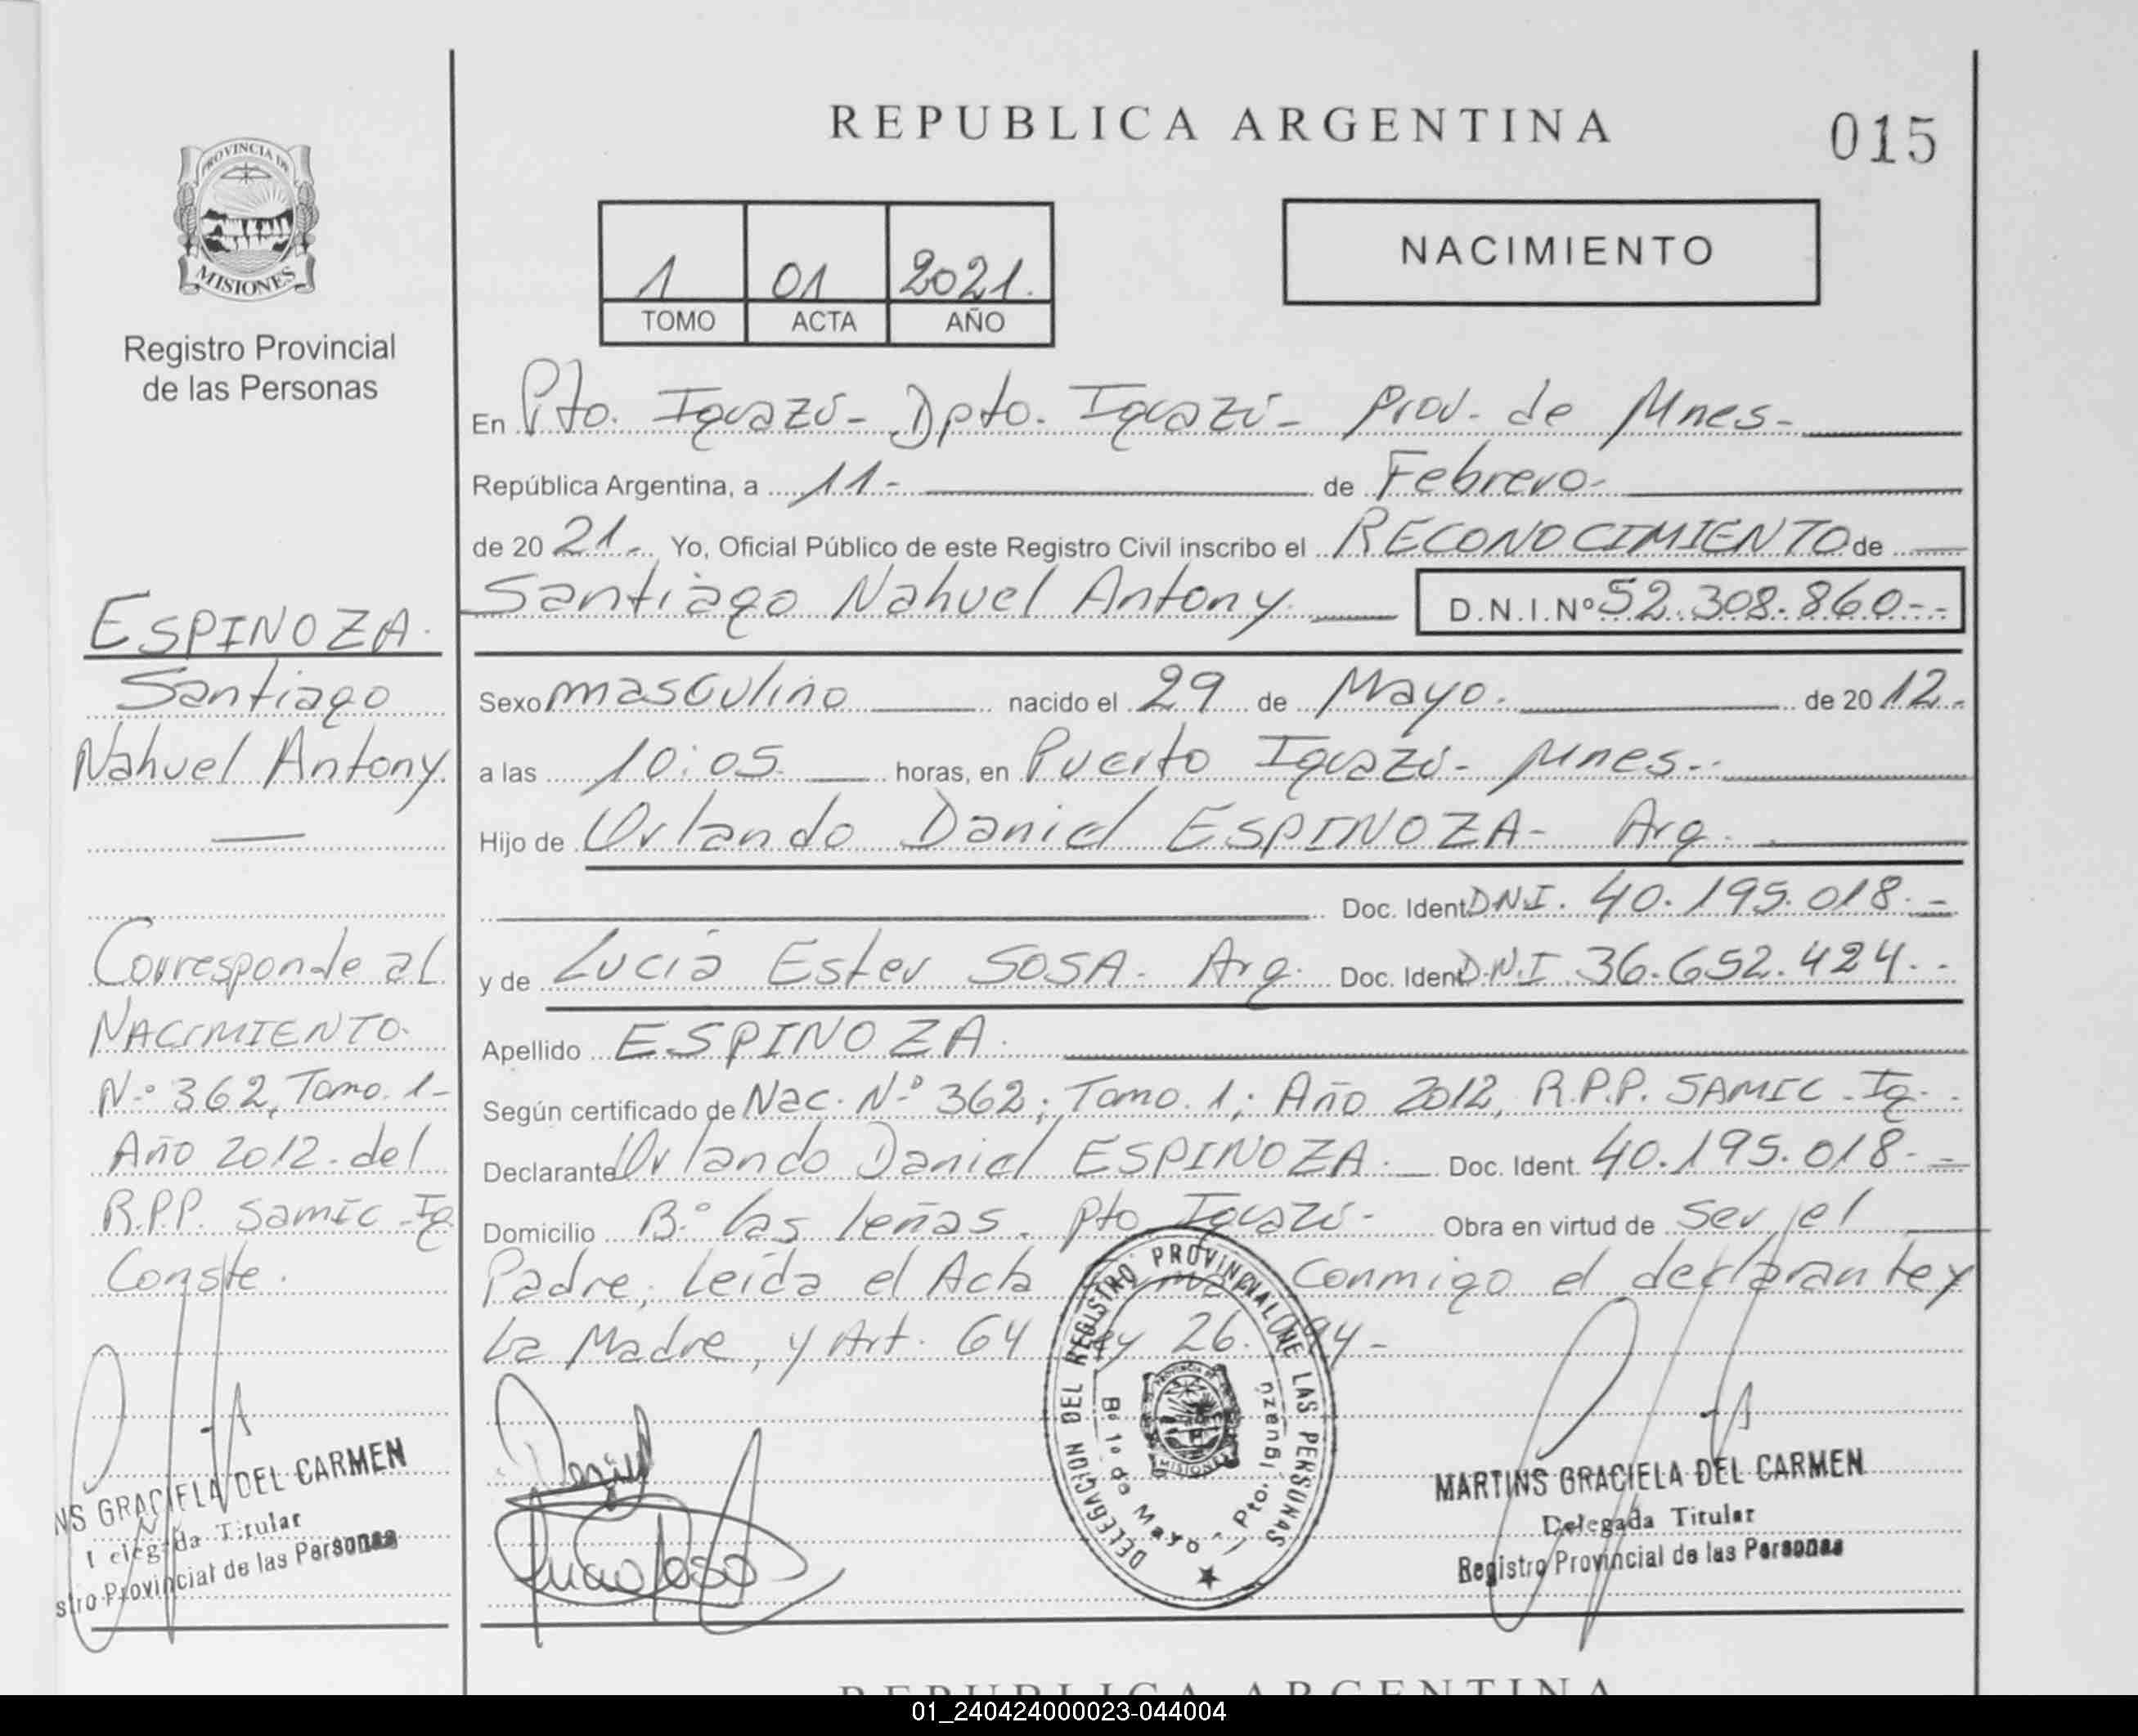 REPUBLICA ARGENTINA
015
PROVINCIA DE
MISIONES
Registro Provincial
de las Personas
1 01 2021.
TOMO ACTA AÑO
NACIMIENTO
En Pto. Iguazú- Dpto. Iguazú- Prov. de Mnes-
República Argentina, a 11- de Febrero-
de 20 21- Yo, Oficial Público de este Registro Civil inscribo el RECONOCIMIENTO de
Santiago Nahuel Antony D.N.I.Nº 52.308.860--
Sexo masculino nacido el 29 de Mayo. de 20 12.-
a las 10:05 horas, en Puerto Iguazú- Mnes-
Hijo de Orlando Daniel ESPINOZA- Arg.
Doc. Ident. DNI. 40.195.018.-
y de Lucia Ester SOSA- Arg. Doc. Ident. D.N.I 36.652.424.-
Apellido ESPINOZA.
Según certificado de Nac. Nº 362; Tomo. 1; Año 2012, R.P.P. SAMIC-Ig.-
Declarante Orlando Daniel ESPINOZA. Doc. Ident. 40.195.018.-
Domicilio B.º las leñas. Pto Iguazú- Obra en virtud de Ser el
Padre; Leída el Acta Conmigo el declarante y
La Madre, y Art. 64 Ley 26. 94-
ESPINOZA.
Santiago
Nahuel Antony
Corresponde al
NACIMIENTO.
N.º 362, Tomo. 1-
Año 2012. del
R.P.P. Samic-Ig
Conste.
NS GRACIELA DEL CARMEN
Delegada Titular
stro Provincial de las Personas
Daniel
DELEGACION DEL REGISTRO PROVINCIAL DE LAS PERSONAS
Bº 1º de Mayo - Pto. Iguazú
PROVINCIA DE
MISIONES
MARTINS GRACIELA DEL CARMEN
Delegada Titular
Registro Provincial de las Personas
REPUBLICA ARGENTINA
01_240424000023-044004